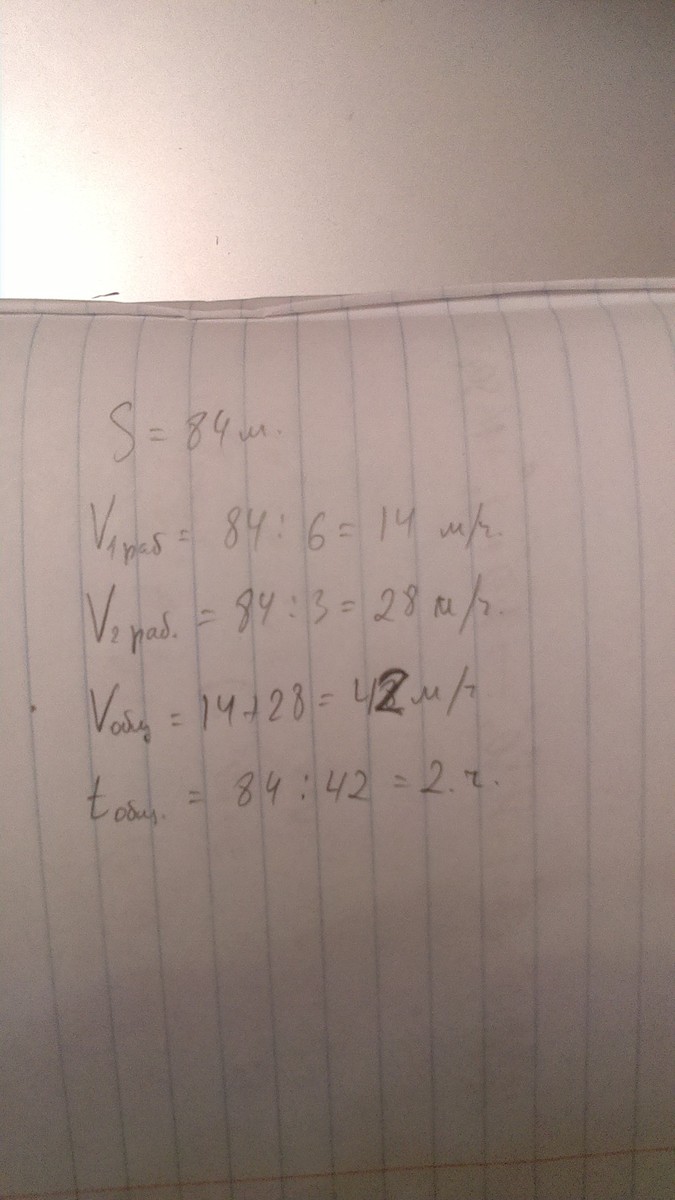 S = 84 м.
V1 раб = 84 : 6 = 14 м/ч.
V2 раб. = 84 : 3 = 28 м/ч.
Vобщ = 14+28 = 42 м/ч
tобщ. = 84 : 42 = 2. ч.